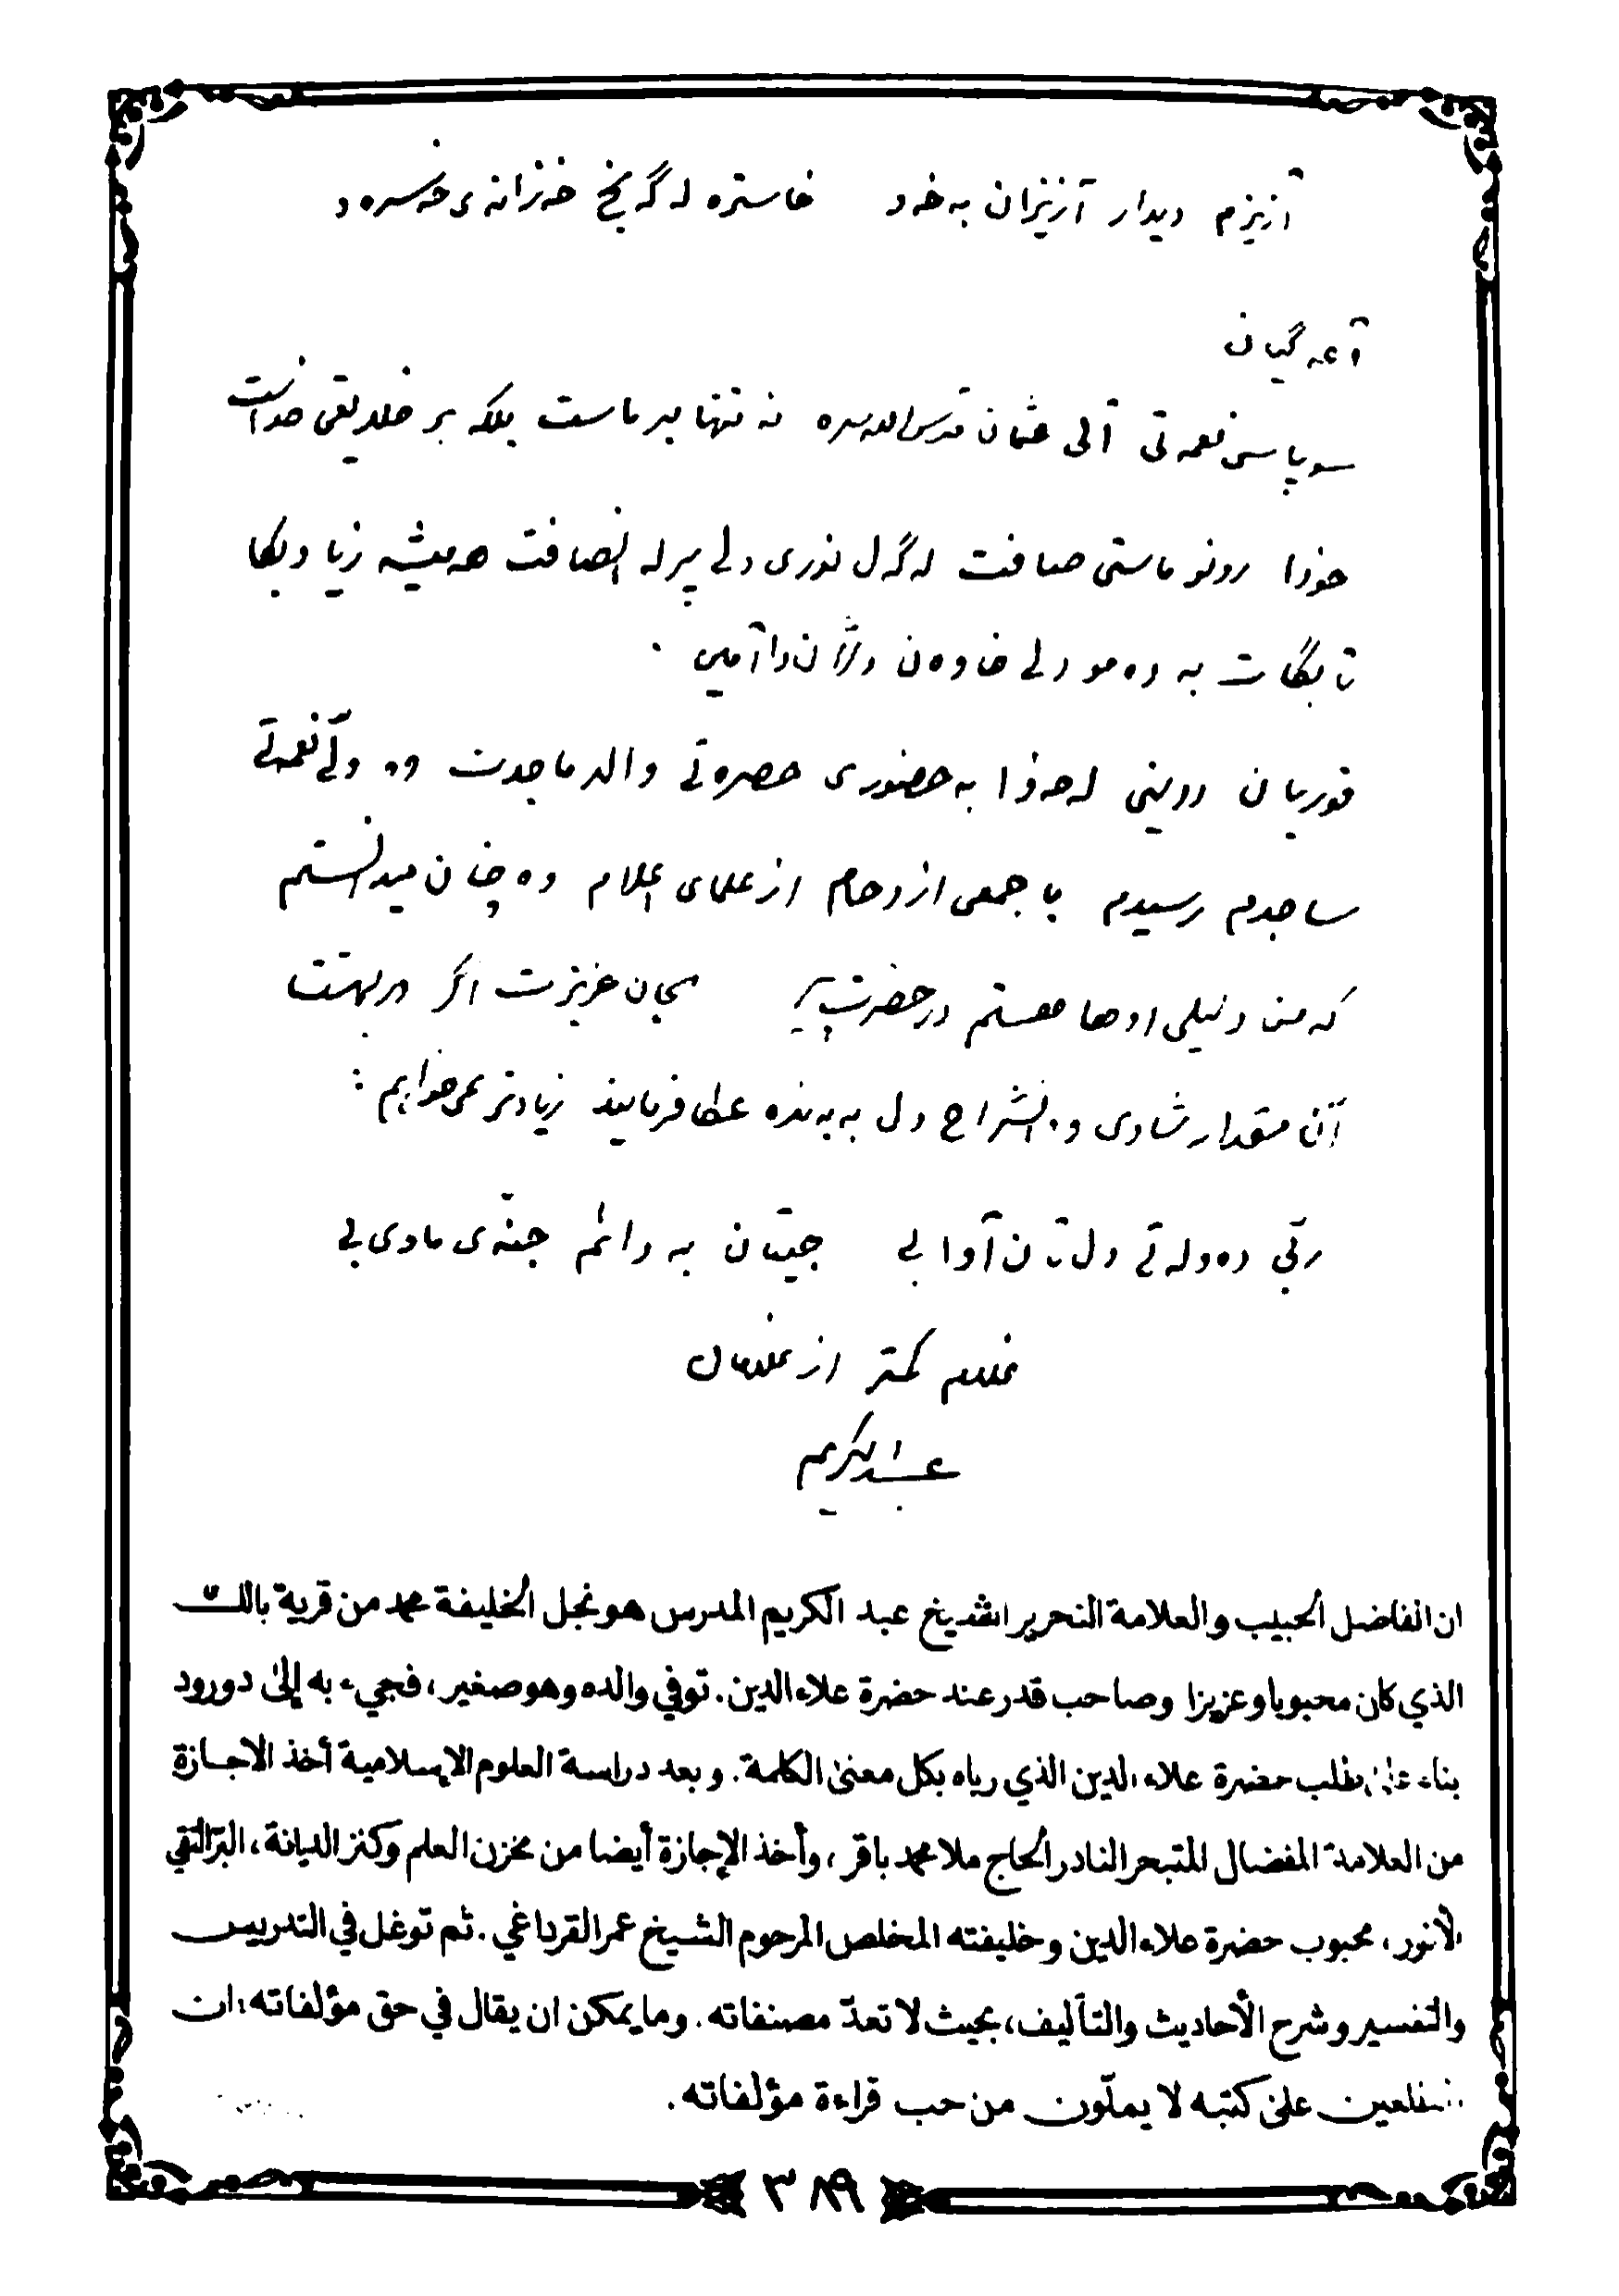 ئازیزم دیدار ئازیزان بەخەد خاسترە لە گەنج خەزانەی خەسرەو
ئاغەگیان
سوپاس نعمەتی آلی عثمان قدس اللە سرە نە تنها بر ماست بلکە بر خلایقی خداست
خودا رونو ماستی صافت لەگەل نوری دلی پر لە انصافت هەمیشە زیاد بکا
تا بگات بە دەمو دلی خاوەن دلان دا آمین .
قوربان دوینی لەحەوزا بەحضوری حضرەتی والد ماجدت وە ولی نعمەتی
ساجدم رسیدم با جمعی ازدحام از علمای اعلام وە چنان میدانستم
کە من دلیلی اوها هستم در حضرت پیر بجان عزیزت اگر در بهشت
آن مقدار شادی و انشراح دل بە بەندە عطا فرمایند زیادتر نمی خواهم :
ربی دەولەتی دل تان آوا بی جیتان بە دائم جنەی ماوی بی
غلام کمتر از غلامان
عبدالکریم
ان الفاضل الحبيب والعلامة النحرير الشيخ عبد الكريم المدرس هو نجل الخليفة محمد من قرية بالك
الذي كان محبوبا وعزيزا وصاحب قدر عند حضرة علاء الدين. توفي والده وهو صغير، فجيء به إلى دورود
بناء على طلب حضرة علاء الدين الذي رباه بكل معنى الكلمة. وبعد دراسة العلوم الإسلامية أخذ الاجازة
من العلامة المفضال المتبحر النادر الحاج ملا محمد باقر، وأخذ الإجازة أيضا من مخزن العلم وكنز الديانة، البر التقي
الأنور، محبوب حضرة علاء الدين وخليفته المخلص المرحوم الشيخ عمر القرداغي. ثم توغل في التدريس
والتفسير وشرح الأحاديث والتآليف، بحيث لا تعدّ مصنفاته. وما يمكن ان يقال في حق مؤلفاته: ان
على كتبه لا يملّون من حب قراءة مؤلفاته.
٣٨٩